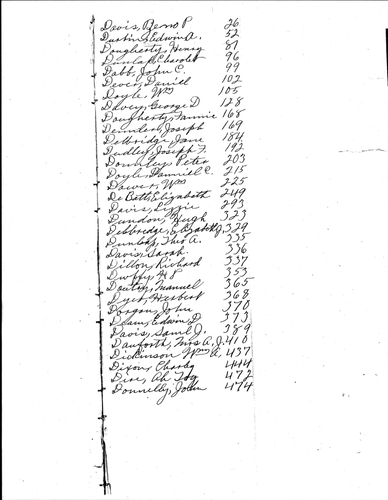 Devis, Benso P 26
Dustin, Edwin A. 52
Dougherty, Henry 87
Dunlap, Charolet 96
Dabb, John C. 99
Dever, Daniel 102
Doyle, Wm 105
Davey, George D 128
Dougherty, Fannie 168
Dennler, Joseph 169
Delbridge, Jane 184
Dudley, Joseph F. 192
Donnley, Peter 203
Doyle, Danniel C. 215
Dower, Wm 225
De Bett, Elizabeth 249
Davis, Lizzie 293
Dundon, Hugh 323
Delbredge, Elizabeth J. 329
Dunbar, Thos A. 335
Davis, Sarah 336
Dillon, Richard 337
Duffy, H S 353
Doutey, Manuel 365
Dyet, Hubert 368
Dorgan, John 370
Deam, Edwin D 373
Davis, Saml J. 389
Danforth, Mrs A. J. 410
Dickinson Wm A. 437
Dixon, Charley 444
Dere, Ah Toy 472
Donnelly, John 474